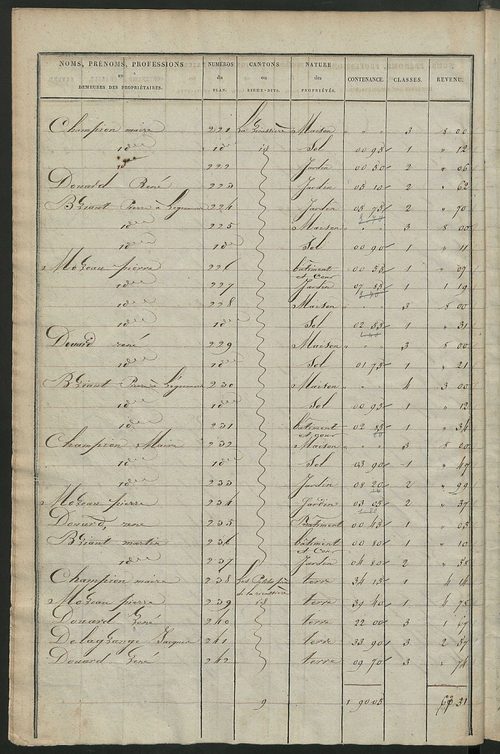 NOMS, PRÉNOMS, PROFESSIONS ET DEMEURES DES PROPRIÉTAIRES. NUMÉROS du PLAN. CANTONS ou LIEUX-DITS. NATURE des PROPRIÉTÉS. CONTENANCE. CLASSES. REVENU.
Champion maire 221 Maison " " 3 8 00
id id id Sol 00 95 1 " 12
id 222 Jardin 00 30 2 " 06
Douard René 223 Jardin 03 10 2 " 62
Briant 224 Jardin 03 75 2 " 70
id 225 Maison " 3 8 00
id id Sol 00 90 1 " 11
Moreau pierre 226 bâtiment et cour 00 55 1 " 09
id 227 Jardin 07 55 1 1 19
id 228 Maison 3 8 00
id id Sol 02 55 1 " 31
Douard rené 229 Maison 3 8 00
id id Sol 01 75 1 " 21
Briant 230 Maison 4 3 00
id id Sol 00 95 1 " 12
id 231 bâtiment et cour 02 85 1 " 34
Champion Maire 232 Maison 3 8 00
id id Sol 03 90 1 " 47
id 233 Jardin 08 20 2 " 99
Moreau pierre 234 Jardin 03 05 2 " 37
Douard, rené 235 Bâtiment 00 45 1 " 05
Briant martin 236 bâtiment et Cour 00 80 1 " 10
id 237 Jardin 04 80 2 " 58
Champion maire 238 terre 34 15 1 4 14
Moreau pierre 239 id terre 39 40 1 4 78
Douard René 240 terre 22 00 3 1 67
Delagrange 241 terre 33 90 3 2 37
Douard René 242 terre 09 70 3 " 74
9 1 90 05 31